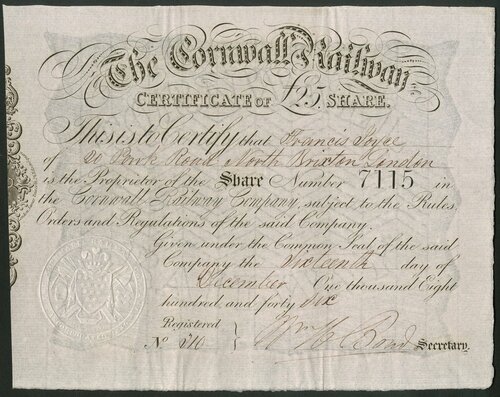 The Cornwall Railway
CERTIFICATE OF £25 SHARE.
This is to Certify that Francis Joyce
of 20 Park Road North Brixton London
is the Proprietor of the Share Number 7115 in
the Cornwall Railway Company, subject to the Rules
Orders and Regulations of the said Company.
Given under the Common Seal of the said
Company the Sixteenth day of
December One thousand Eight
hundred and forty Six
Registered
No 310 } Wm H Bond Secretary.